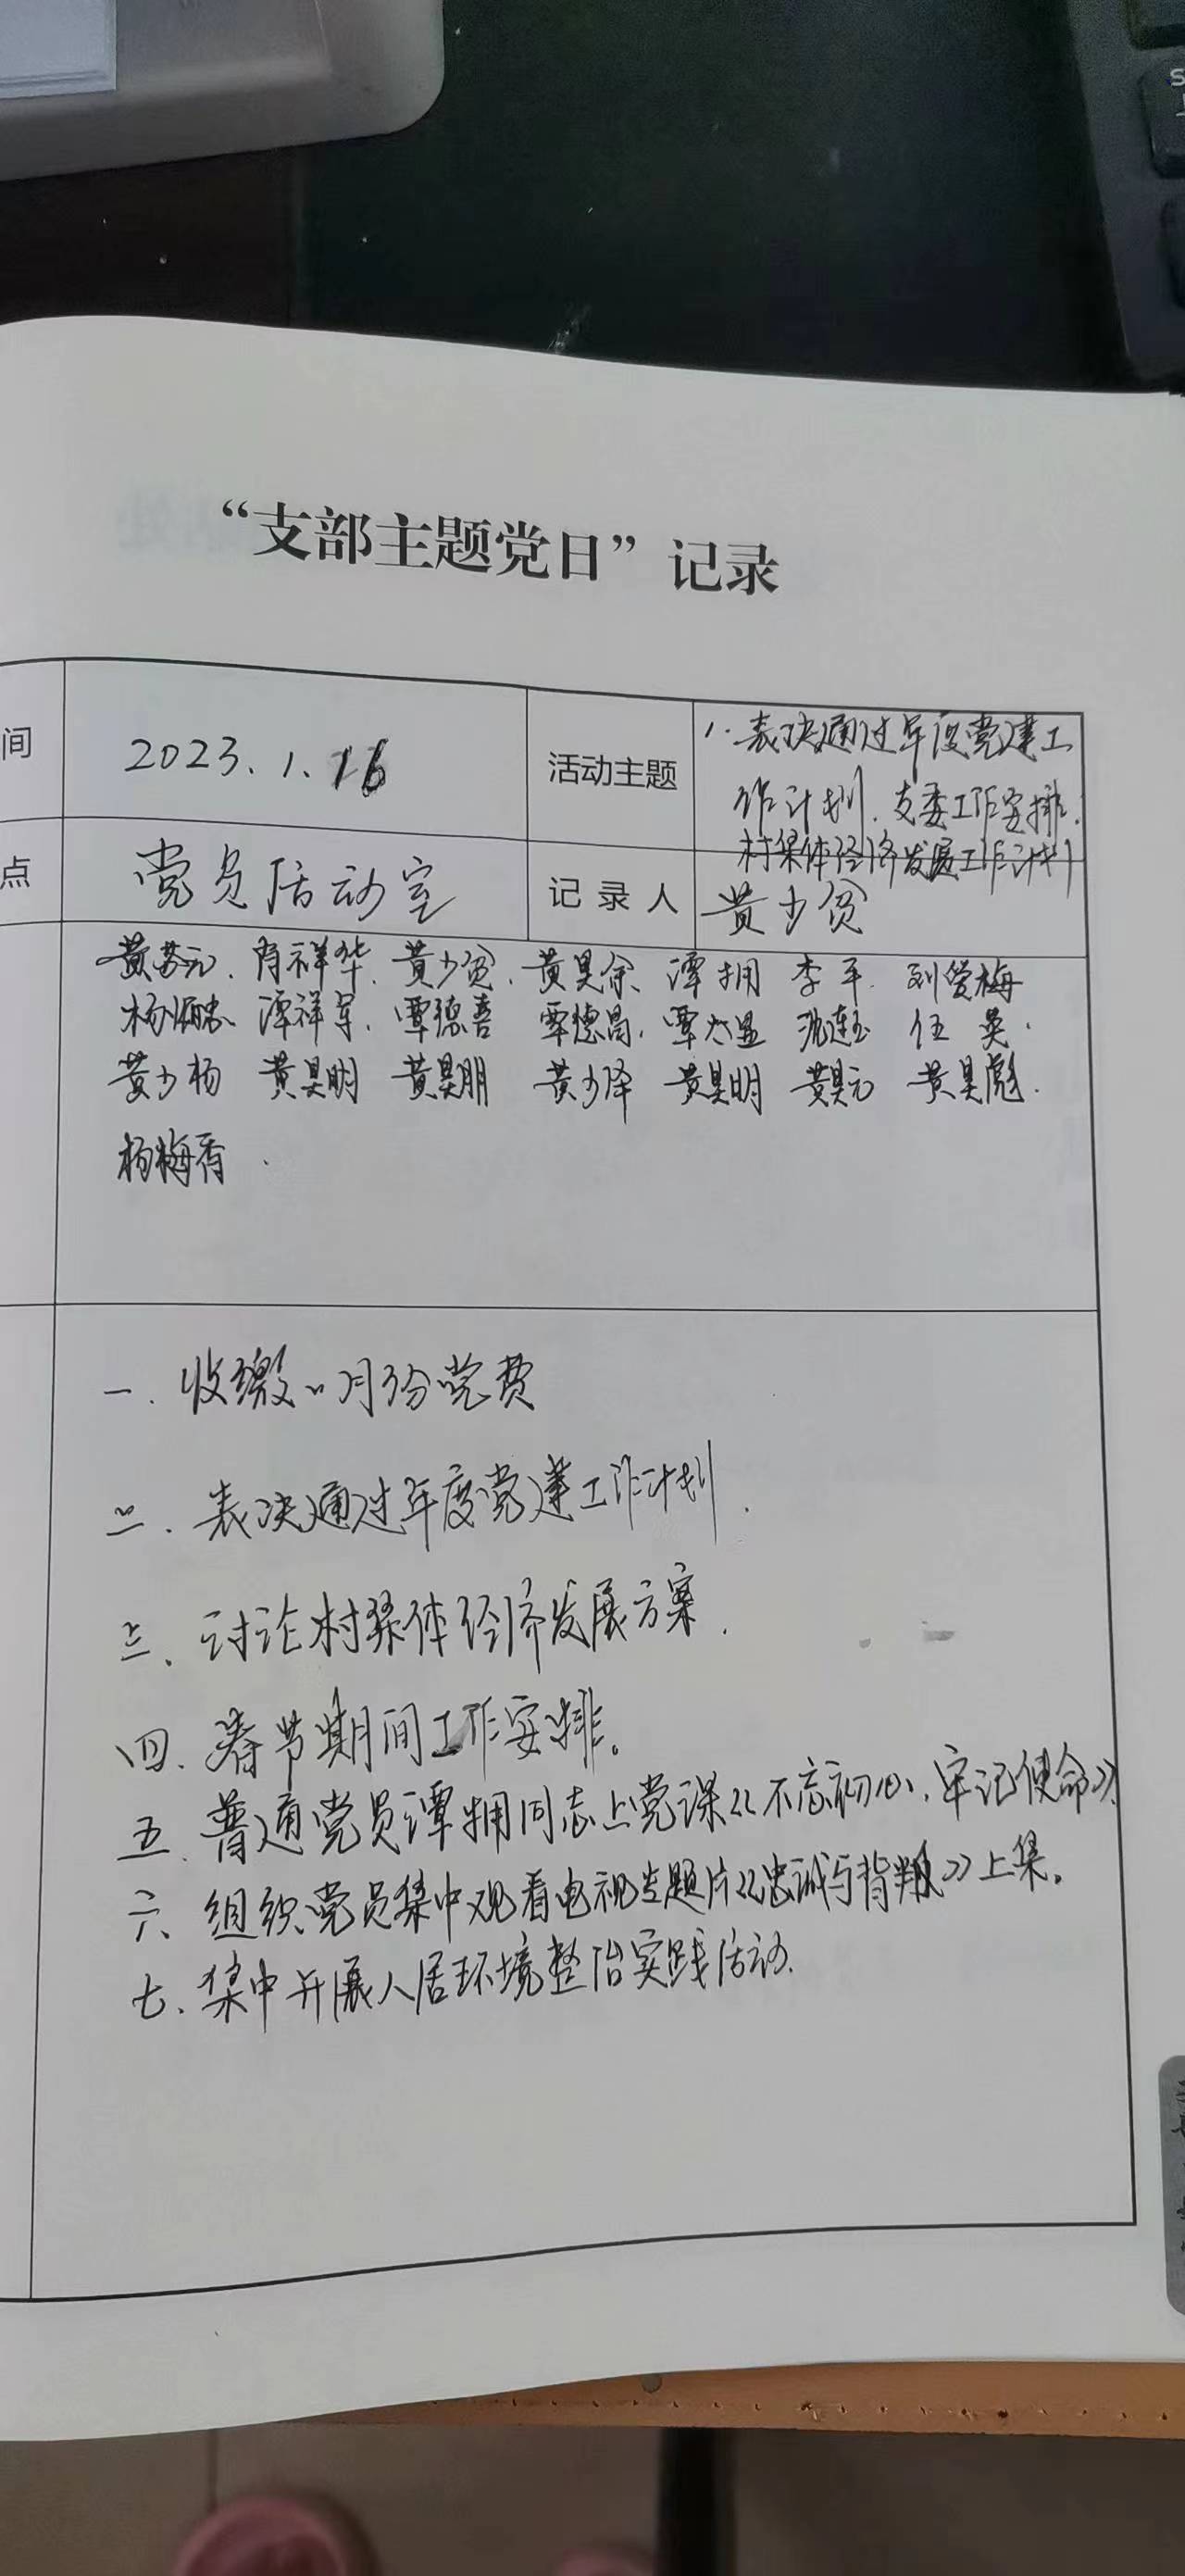 “支部主题党日”记录
间 2023.1.16 活动主题 1.表决通过年度党建工
作计划.支委工作安排.
村集体经济发展工作计划
点 党员活动室 记录人 黄少贫
黄苏元.肖祥华.黄少贫.黄昊余.谭拥 李平.刘爱梅
谭祥军.覃德喜 覃德高.覃太显 沈连玉 伍英.
黄少杨 黄昊明 黄昊朋 黄少泽 黄昊明 黄昊元 黄昊彪.
杨梅香.
一.收缴1月份党费
二.表决通过年度党建工作计划.
三、讨论村集体经济发展方案.
四.春节期间工作安排。
五.普通党员谭拥同志上党课《不忘初心、牢记使命》
六.组织党员集中观看电视专题片《忠诚与背叛》上集。
七.集中开展人居环境整治实践活动.